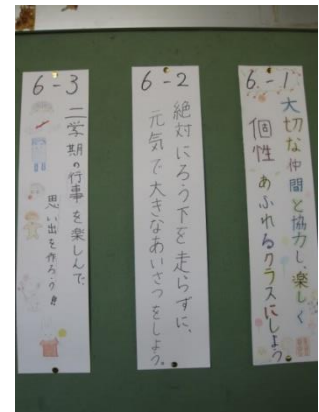 6-1
大切な仲間と協力し、楽しく
個性あふれるクラスにしよう
6-2
絶対にろう下を走らずに、
元気で大きなあいさつをしよう。
6-3
二学期の行事を楽しんで
思い出を作ろう!!